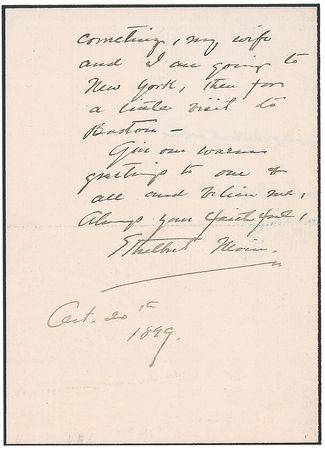 cometing, my wife
and I am going to
New York, then for
a little visit to
Boston –
Give our warm
greetings to one &
all and believe me,
Always your faithful,
Ethelbert Nevin.
Oct. 20th
1899.